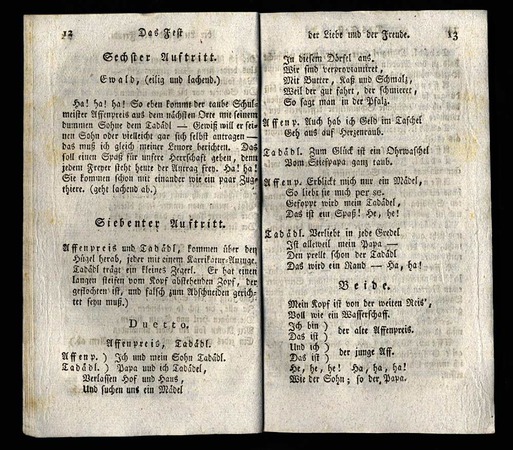 12 Das Fest
Sechster Auftritt.
Ewald, (eilig und lachend.)
Ha! ha! ha! So eben kommt der taube Schul-
meister Affenpreis aus dem nächsten Orte mit seinem
dummen Sohne dem Tadädl — Gewiß will er sei-
nen Sohn oder vielleicht gar sich selbst antragen —
das muß ich gleich meiner Lenore berichten. Das
soll einen Spaß für unsere Herrschaft geben, denn
jedem Freyer steht heute der Antrag frey. Ha! ha!
Sie kommen schon mit einander wie ein paar Zug-
thiere. (geht lachend ab.)
Siebenter Auftritt.
Affenpreis und Tadädl, kommen über den
Hügel herab, jeder mit einem Karrikatur-Anzuge.
Tadädl trägt ein kleines Zegerl. Er hat einen
langen steifen vom Kopf abstehenden Zopf, der
geflochten ist, und falsch zum Abschneiden gerich-
tet seyn muß.)
Duetto.
Affenpreis, Tadädl.
Affenp. ) Ich und mein Sohn Tadädl.
Tadädl. ) Papa und ich Tadädel,
Verlassen Hof und Haus,
Und suchen uns ein Mädel
der Liebe und der Freude. 13
In diesem Dörfel aus.
Wir sind verproviantiret,
Mit Butter, Kaß und Schmalz,
Weil der gut fahrt, der schmieret,
So sagt man in der Pfalz.
Affenp. Auch hab ich Geld im Taschel
Geh aus auf Herzenraub.
Tadädl. Zum Glück ist ein Ohrwaschel
Vom Stiefpapa ganz taub.
Affenp. Erblickt mich nur ein Mädel,
So liebt sie mich per se.
Gefoppt wird mein Tadädel,
Das ist ein Spaß! He, he!
Tadädl. Verliebt in jede Gredel
Ist alleweil mein Papa —
Den prellt schon der Tadädl
Das wird ein Rand — Ha, ha!
Beide.
Mein Kopf ist von der weiten Reis',
Voll wie ein Wasserschaff.
Ich bin )
Das ist ) der alte Affenpreis.
Und ich )
Das ist ) der junge Aff.
He, he, he! Ha, ha, ha!
Wie der Sohn; so der Papa.